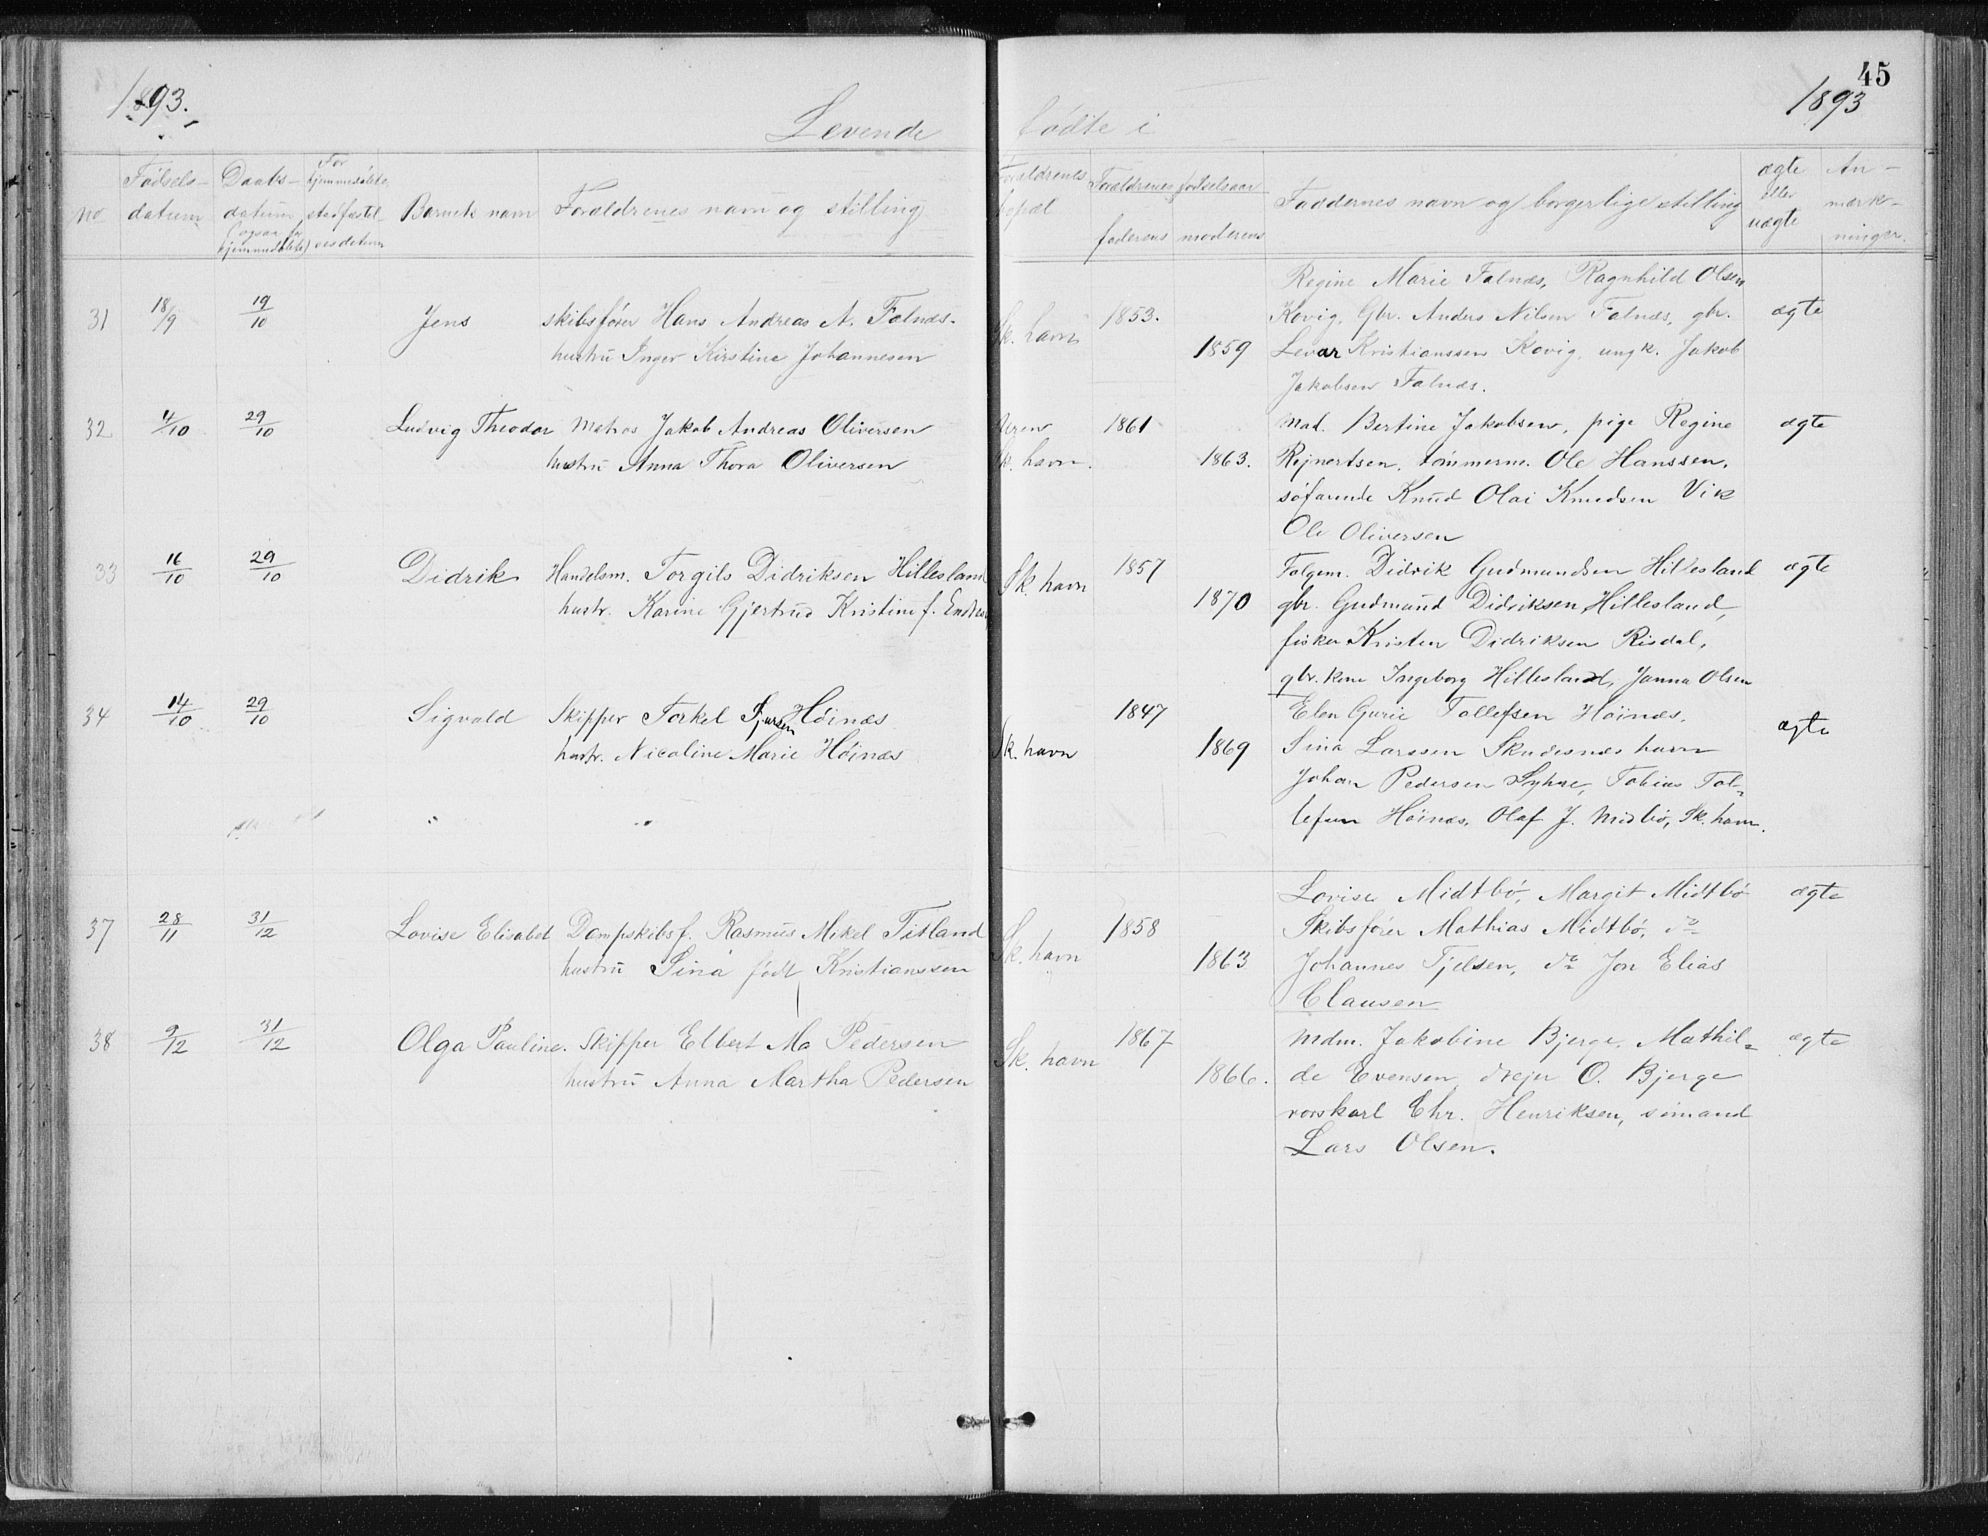 1893.
45
1893
Levende
fødte i
no
Fødsels-
datum
Daabs-
datum
(ogsaa for
hjemmedøbte)
For
hjemmedøbte
stadfæstel-
sesdatum
Barnets navn
Forældrenes navn og stilling
Forældrenes
bopæl
Forældrenes fødselsaar
faderens
moderens
Faddernes navn og borgerlige stilling
ægte
eller
uægte
An-
mærk-
ninger.
31 18/9 19/10 Jens skibsfører Hans Andreas A. Falnæs.
hustru Inger Kirstine Johannesen
Sk. havn 1853. 1859
Regine Marie Falnæs, Ragnhild Olsen
Kovig, Gbr. Anders Nilsen Falnæs, gbr.
Levar Kristianssen Kovig, ungk. Jakob
Jakobsen Falnæs.
ægte
32 4/10 29/10 Ludvig Theodor Matros Jakob Andreas Oliversen
hustru Anna Thora Oliversen
Sk. havn. 1861 1863.
Mad. Bertine Jakobsen, pige Regine
Rejnertsen, tømmerm. Ole Hanssen,
søfarende Knud Olai Knudsen Vik
Ole Oliversen
ægte
33 16/10 29/10 Didrik Handelsm. Torgils Didriksen Hillesland
hustr. Karine Gjertrud Kristine f. Endresen
Sk. havn 1857 1870
Folgem. Didrik Gudmundsen Hillesland
gbr. Gudmund Didriksen Hillesland,
fisker Kristen Didriksen Risdal,
gbr. kone Ingeborg Hillesland, Janna Olsen
ægte
34 14/10 29/10 Sigvald Skipper Torkel Sjursen Høines
hustr. Nicoline Marie Høines
Sk. havn 1847 1869
Elen Gurie Tollefsen Høines.
Sina Larssen Skudesnæshavn
Johan Pedersen Syhne, Tobias Tol-
lefsen Høines, Olaf J. Midbø, Sk. havn.
ægte
37 28/11 31/12 Lovise Elisabet Dampskibsf. Rasmus Mikel Titland
hustru Sina født Kristianssen
Sk. havn 1858 1863
Lovise Midtbø, Margit Midtbø
Skibsfører Mathias Midtbø, do
Johannes Fjelsen, do Jon Elias
Clausen
ægte
38 9/12 31/12 Olga Pauline. Skipper Elbert Ma Pedersen
hustru Anna Martha Pedersen
Sk. havn 1867 1866.
Mdm. Jakobine Bjerge, Mathil-
de Evensen, drejer O. Bjerge
rorskarl Chr. Henriksen, sømand
Lars Olsen.
ægte